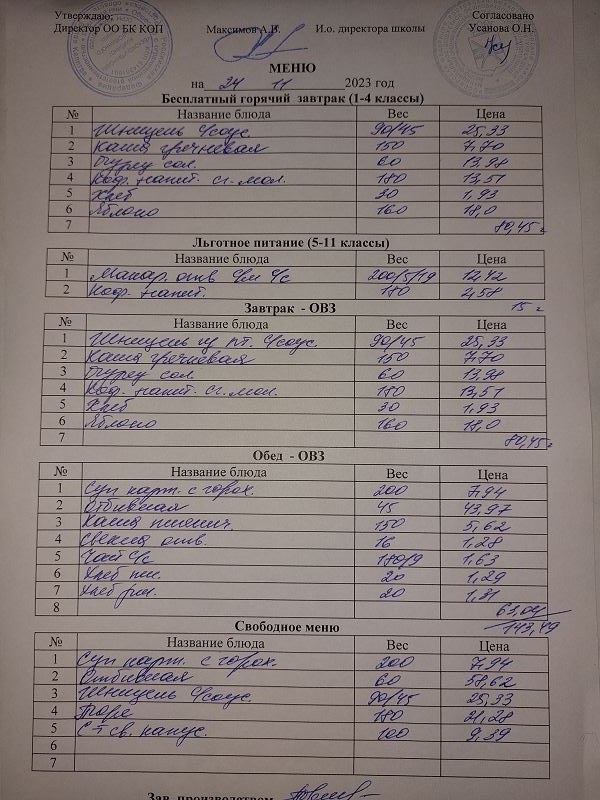 Утверждаю: Согласовано
Директор ОО БК КОП Максимов А.В. И.о. директора школы Усанова О.Н.
МЕНЮ
на 24 11 2023 год
Бесплатный горячий завтрак (1-4 классы)
№ Название блюда Вес Цена
1 Шницель с/соус 90/45 25,33
2 Каша гречневая 150 7,70
3 Огурец сол. 60 13,98
4 Коф. напит. сг. мол. 180 13,51
5 Хлеб 30 1,93
6 Яблоко 160 18,0
7 80,45
Льготное питание (5-11 классы)
№ Название блюда Вес Цена
1 Макар. отв с/м с/с 200/5/19 12,42
2 Коф. напит. 180 2,58
15
Завтрак - ОВЗ
№ Название блюда Вес Цена
1 Шницель из пт. с/соус 90/45 25,33
2 Каша гречневая 150 7,70
3 Огурец сол. 60 13,98
4 Коф. напит. сг. мол. 180 13,51
5 Хлеб 30 1,93
6 Яблоко 160 18,0
7 80,45
Обед - ОВЗ
№ Название блюда Вес Цена
1 Суп карт. с горох. 200 7,94
2 Отбивная 45 43,97
3 Каша пшенич. 150 5,62
4 Свекла отв. 16 1,28
5 Чай с/с 180/9 1,63
6 Хлеб пш. 20 1,29
7 Хлеб рж. 20 1,31
8 63,04
143,49
Свободное меню
№ Название блюда Вес Цена
1 Суп карт. с горох. 200 7,94
2 Отбивная 60 58,62
3 Шницель с/соус. 90/45 25,33
4 Пюре 180 21,28
5 С-т св. капус. 100 9,39
6
7
Зав. производством